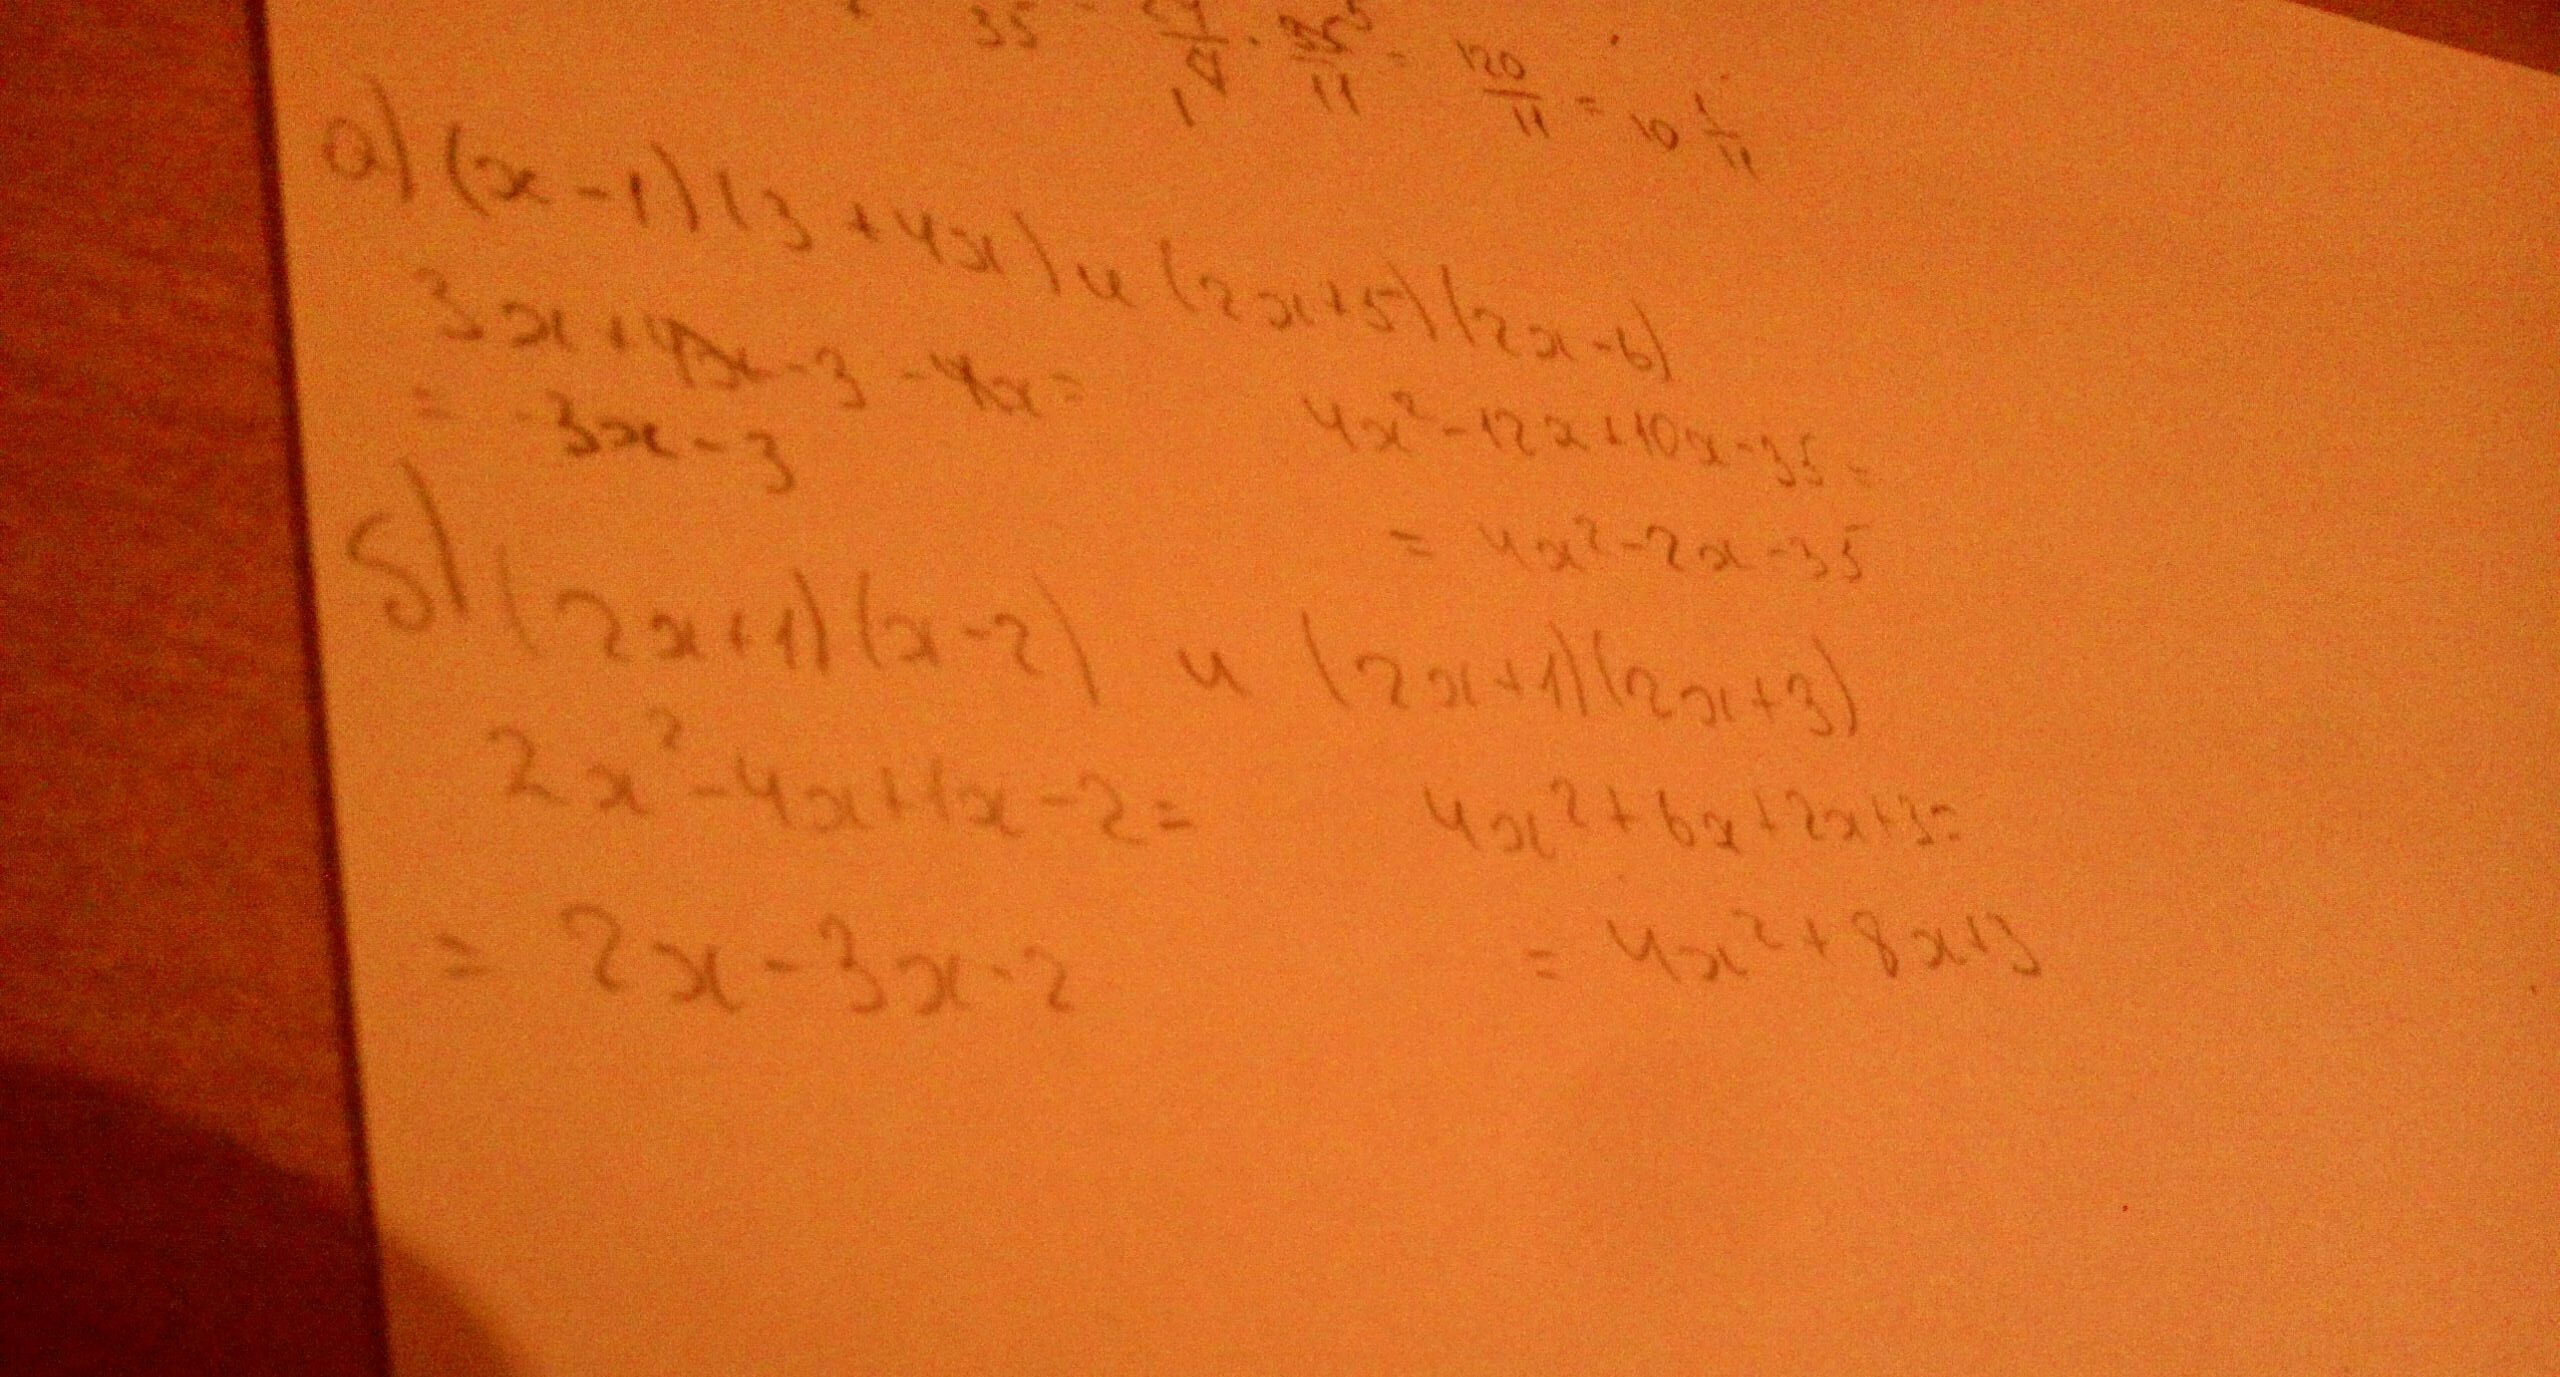 35 · 35⁵/11 = 120/11 = 10 1/11
а) (x-1)(3+4x) и (2x+5)(2x-6)
3x+4x-3-4x=
= 3x-3
4x²-12x+10x-35=
= 4x²-2x-35
б) (2x+1)(x-2) и (2x+1)(2x+3)
2x²-4x+1x-2= 4x²+6x+2x+3=
= 2x-3x-2 = 4x²+8x+3